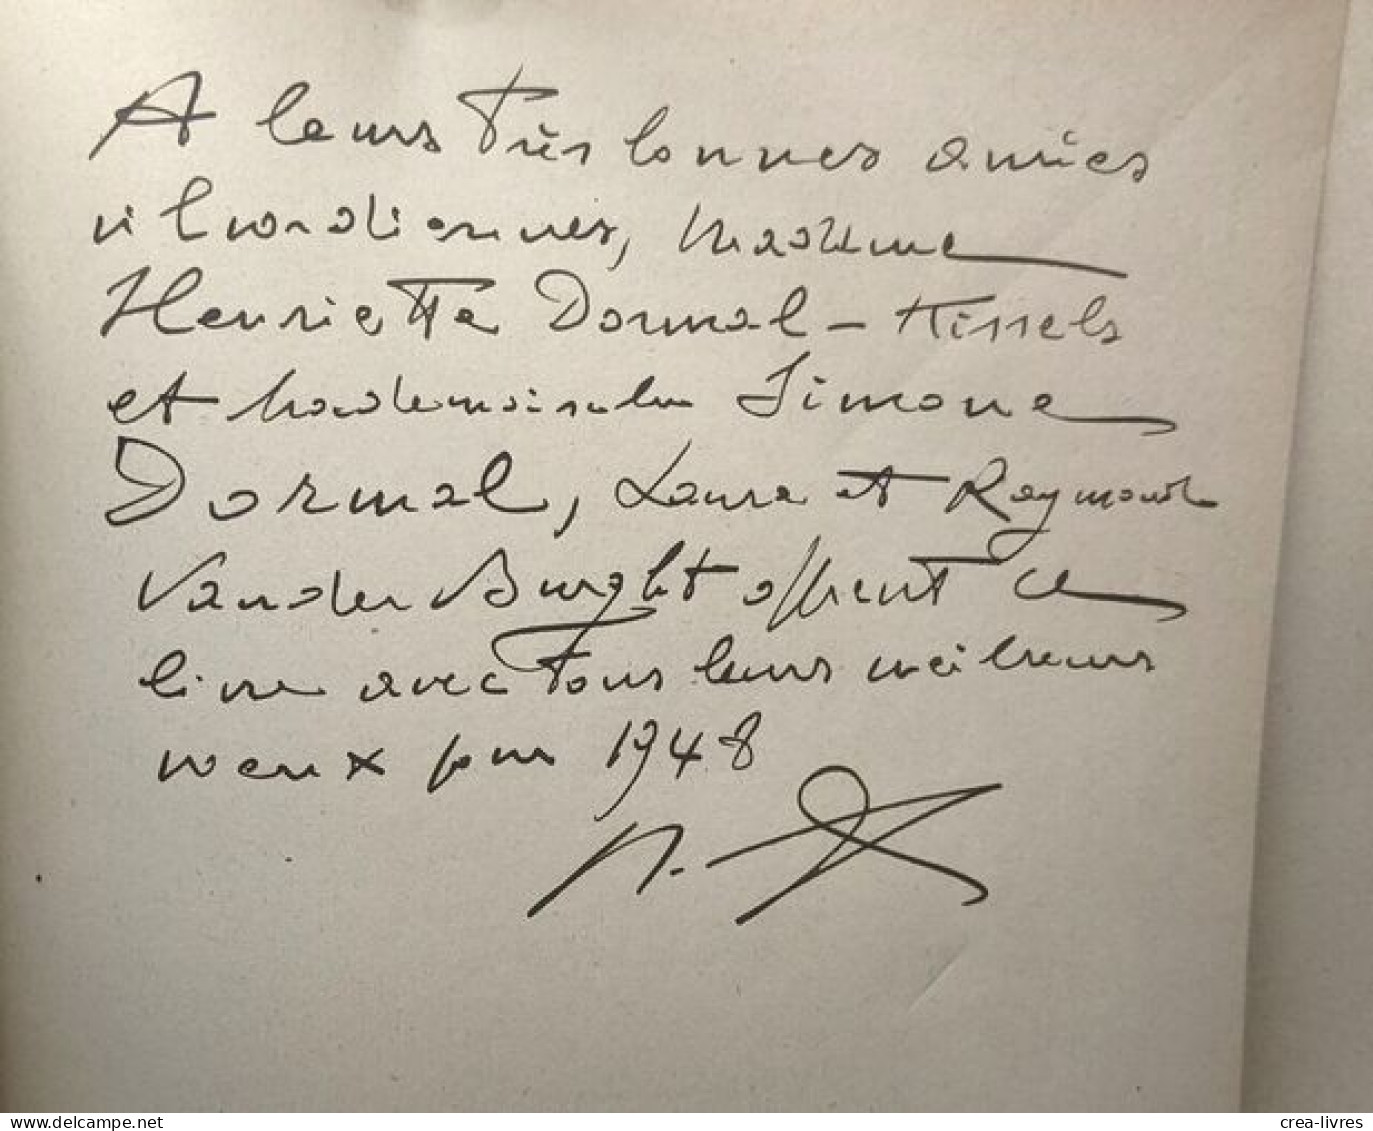 A leurs très bonnes amies
vilvordiennes, Madame
Henriette Dormal-Kissels
et Mademoiselle Simone
Dormal, Laure et Raymond
Vander Burght offrent ce
livre avec tous leurs meilleurs
vœux pour 1948
www.delcampe.net
crea-livres